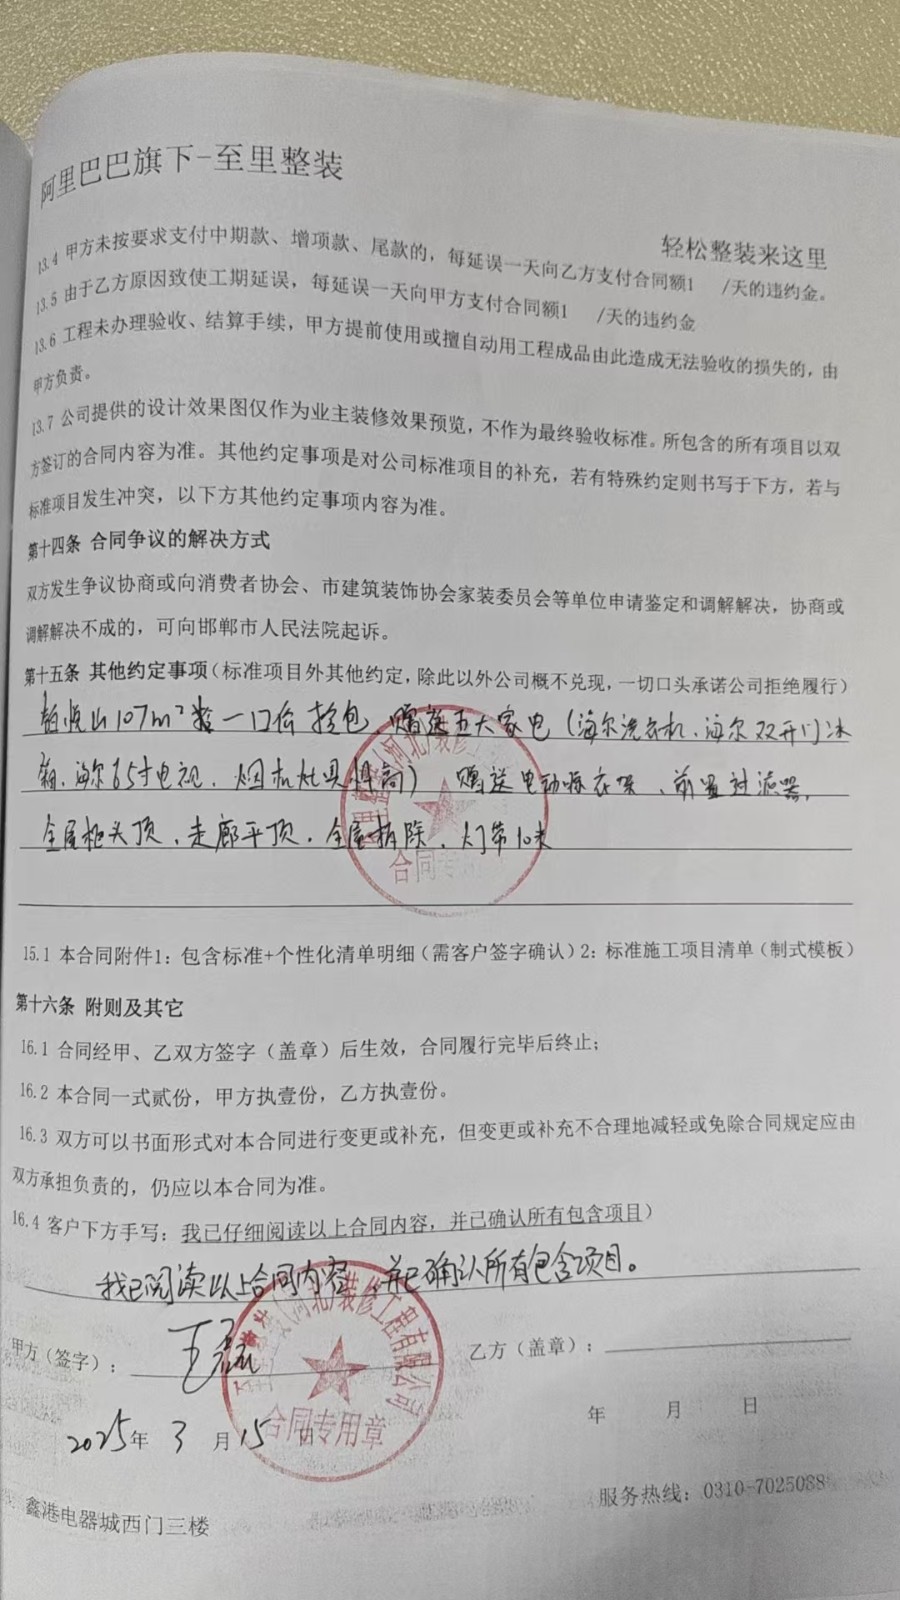 阿里巴巴旗下-至里整装
轻松整装来这里
13.4 甲方未按要求支付中期款、增项款、尾款的，每延误一天向乙方支付合同额1 /天的违约金。
13.5 由于乙方原因致使工期延误，每延误一天向甲方支付合同额1 /天的违约金
13.6 工程未办理验收、结算手续，甲方提前使用或擅自动用工程成品由此造成无法验收的损失的，由
甲方负责。
13.7 公司提供的设计效果图仅作为业主装修效果预览，不作为最终验收标准。所包含的所有项目以双
方签订的合同内容为准。其他约定事项是对公司标准项目的补充，若有特殊约定则书写于下方，若与
标准项目发生冲突，以下方其他约定事项内容为准。
第十四条 合同争议的解决方式
双方发生争议协商或向消费者协会、市建筑装饰协会家装委员会等单位申请鉴定和调解解决，协商或
调解解决不成的，可向邯郸市人民法院起诉。
第十五条 其他约定事项（标准项目外其他约定，除此以外公司概不兑现，一切口头承诺公司拒绝履行）
山107m² 一口价 赠送五大家电（海尔洗衣机、海尔双开门冰
箱、海尔65寸电视、烟机灶具 ） 赠送电动晾衣架、前置过滤器，
全屋柜头顶、走廊平顶、全屋拆除、灯带10米
（河北）装修工
合同专用章
15.1 本合同附件1：包含标准+个性化清单明细（需客户签字确认）2：标准施工项目清单（制式模板）
第十六条 附则及其它
16.1 合同经甲、乙双方签字（盖章）后生效，合同履行完毕后终止；
16.2 本合同一式贰份，甲方执壹份，乙方执壹份。
16.3 双方可以书面形式对本合同进行变更或补充，但变更或补充不合理地减轻或免除合同规定应由
双方承担负责的，仍应以本合同为准。
16.4 客户下方手写：我已仔细阅读以上合同内容，并已确认所有包含项目）
我已阅读以上合同内容，并已确认所有包含项目。
甲方（签字）： 王磊
乙方（盖章）：
（河北）装修工程有限公司
合同专用章
2025年 3 月 15 日
年 月 日
鑫港电器城西门三楼
服务热线：0310-7025088